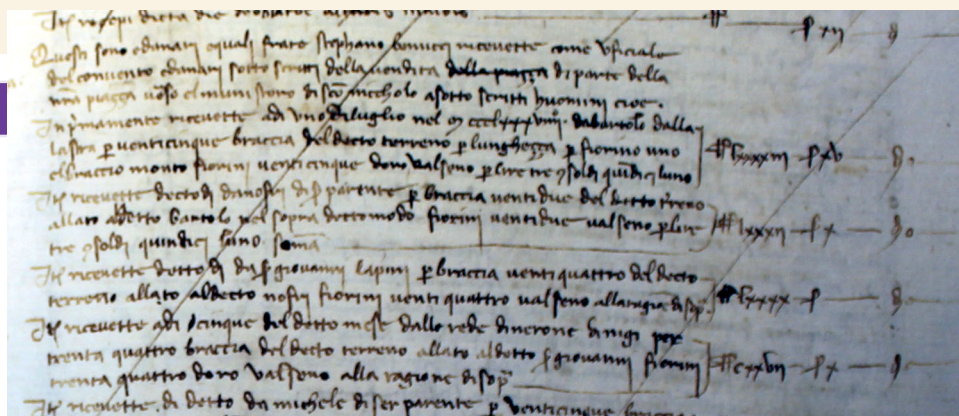 Questi sono edanari equali frate Stephano bonucci ricevette come Uficiale
del convento edanari sotto scritti della vendita della piazza di parte della
nrā piazza verso el munistero di sco niccholo asotto scritti huomini cioe.
In prima mente ricevette adi uno di luglio nel m ccclxxxviiij. da bartolo dalla
lastra p venticinque braccia del decto terreno p lunghezza p fiorino uno
el braccio monto fiorini venticinque doro valseno p lire tre e soldi quindici luno lb lxxxxiij s xv d o
Ite ricevette decto di s partente p braccia venti due del detto
allato adetto bartolo nel sopra decto modo fiorini ventidue valseno p lire lb lxxxii s x d o
tre e soldi quindici luno. soma
Ite ricevette detto di da s giovanni lapini p braccia venti quattro del decto
terreno allato aldecto nofri fiorini venti quattro valseno alla ragione di sop lb lxxxx s d o
Ite ricevette adi cinque del detto mese dallo rede di nerone di nigi per
trenta quattro braccia del decto terreno allato aldetto s giovanni fiorini lb cxxvii s x d o
trenta quattro doro valseno alla ragione di sop
Ite ricevette. di detto da michele di ser parente p venticinque